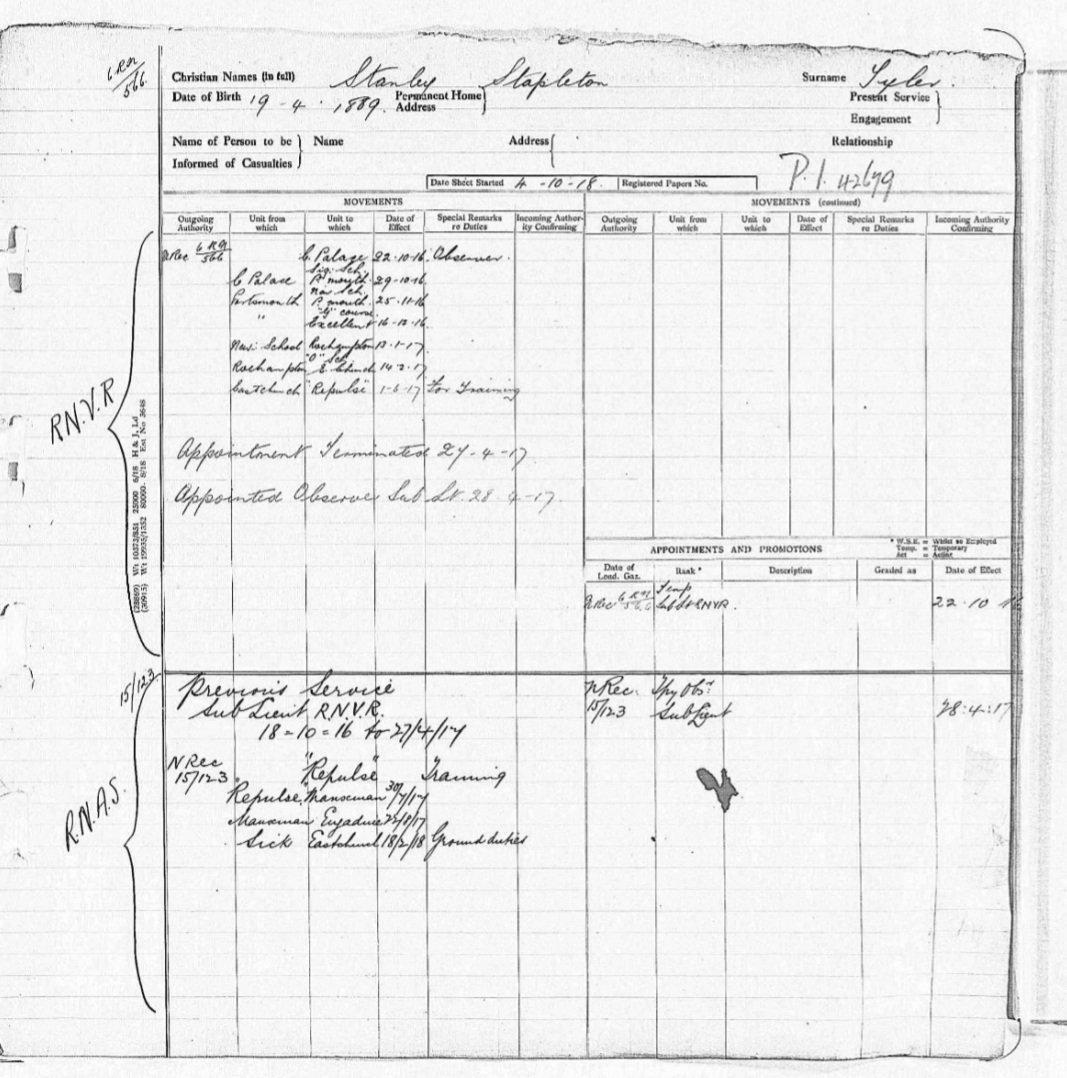 6 RN
566.
Christian Names (in full) Stanley Stapleton Surname Tyler.
Date of Birth 19-4-1889. Permanent Home Address Present Service
Engagement
Name of Person to be Informed of Casualties Name Address Relationship
P.I. 42679
Date Sheet Started 4-10-18. Registered Papers No.
MOVEMENTS MOVEMENTS (continued)
Outgoing Authority Unit from which Unit to which Date of Effect Special Remarks re Duties Incoming Authority Confirming Outgoing Authority Unit from which Unit to which Date of Effect Special Remarks re Duties Incoming Authority Confirming
R.N.V.R
NRec 6 RN/566 C Palace 22.10.16. Observer.
Sig. Sch.
C Palace P'mouth 29-10-16.
Nav Sch.
Portsmouth P.mouth. 25-11-16
"G" course
" Excellent 16-12-16.
Nav: School Roehampton 13-1-17
"O" Sch
Roehampton E Church 14-2-17
Eastchurch "Repulse" 1-6-17 For Training
Appointment Terminated 27-4-17.
Appointed Observer Sub Lt. 28-4-17.
(28869) Wt 10373/851 25000 6/18 H & J, Ld
(30915) Wt 19935/1352 80000 8/18 Est No 3648
APPOINTMENTS AND PROMOTIONS
* W.S.E. = Whilst so Employed
Temp. = Temporary
Act = Acting
Date of Lond. Gaz. Rank * Description Graded as Date of Effect
NRec 6 RN/566 Temp Sub Lt RNVR. 22.10.16
15/123
Previous Service
Sub Lieut R.N.V.R.
18=10=16 to 27/4/17
NRec. Tpy Obsr
15/123 Sub Lieut 28:4:17
R.N.A.S.
N Rec
15/123. "Repulse" Training
Repulse. Manxman 30/7/17
Manxman Engadine 22/8/17
Sick Eastchurch 18/2/18 Ground duties